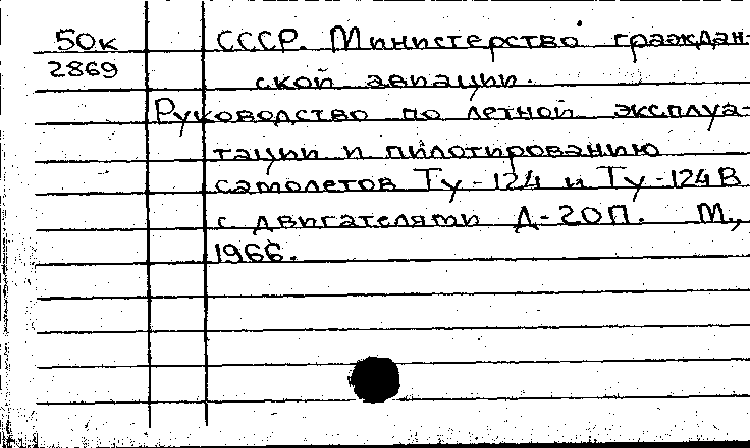 50к СССР. Министерство граждан-
2869 ской авиации.
Руководство по летной эксплуа-
тации и пилотированию
самолетов Ту-124 и Ту-124В
с двигателями Д-20П. М.,
1966.